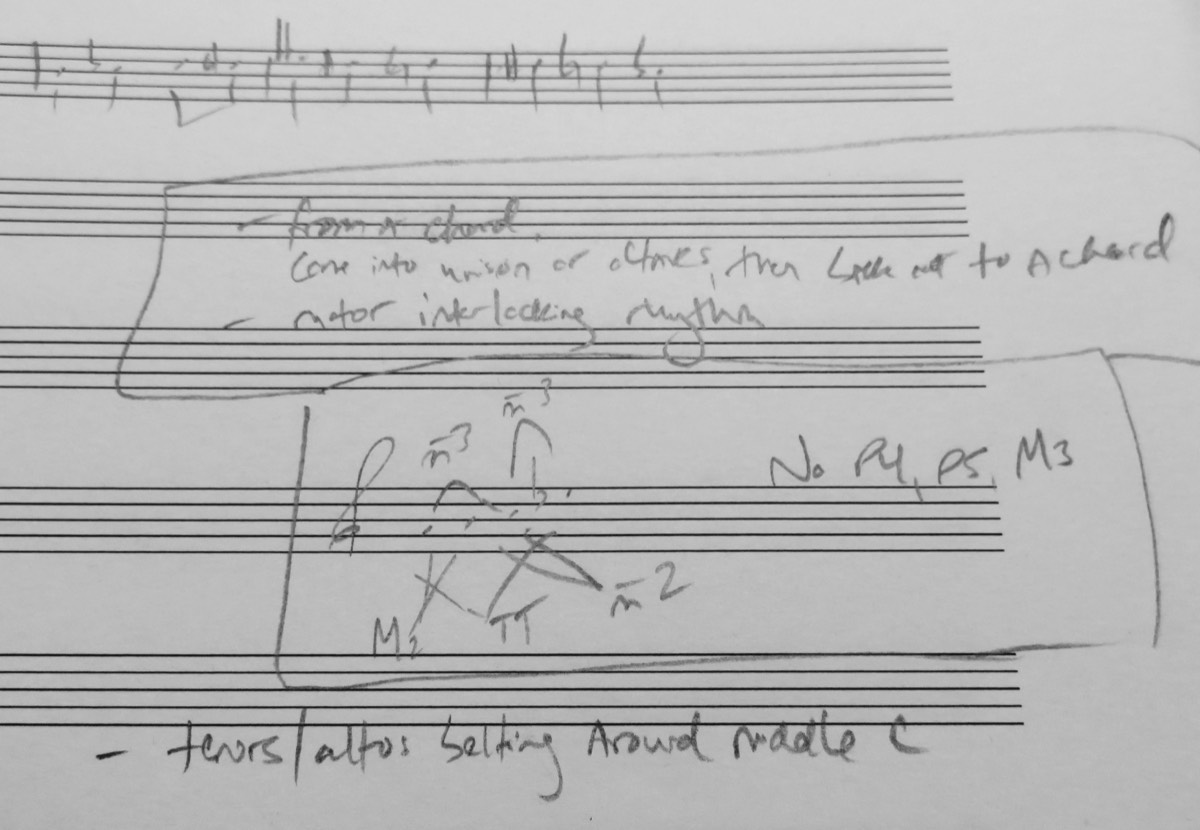 - from a chord
come into unison or octaves, then back out to A chord
- motor interlocking rhythm
m̄3
m̄3
No P4, P5, M3
M2
TT
m̄2
- tenors/altos belting Around middle C